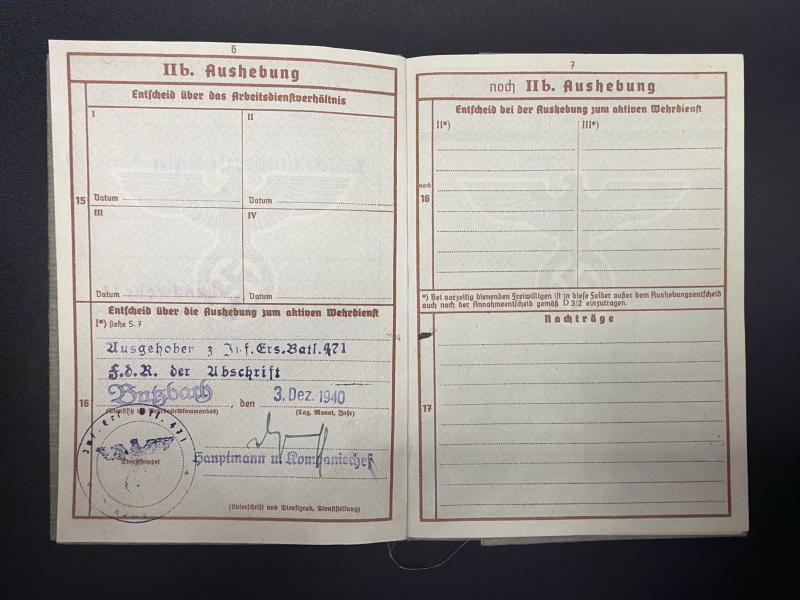 6
IIb. Aushebung
Entscheid über das Arbeitsdienstverhältnis
I
II
Datum
Datum
15
III
IV
Datum
Datum
Entscheid über die Aushebung zum aktiven Wehrdienst
I*) siehe S. 7
Ausgehoben z Inf.Ers.Batl.471
F.d.R. der Abschrift
16
Butzbach, den 3. Dez. 1940
(Tag, Monat, Jahr)
Inf. Ers. Btl. 471
Dienststempel
Hauptmann u. Kompaniechef
(Unterschrift und Dienstgrad, Dienststellung)
7
noch IIb. Aushebung
Entscheid bei der Aushebung zum aktiven Wehrdienst
II*)
III*)
noch
16
*) Bei vorzeitig dienenden Freiwilligen ist in diese Felder außer dem Aushebungsentscheid
auch noch der Annahmeentscheid gemäß D 3/2 einzutragen.
Nachträge
17